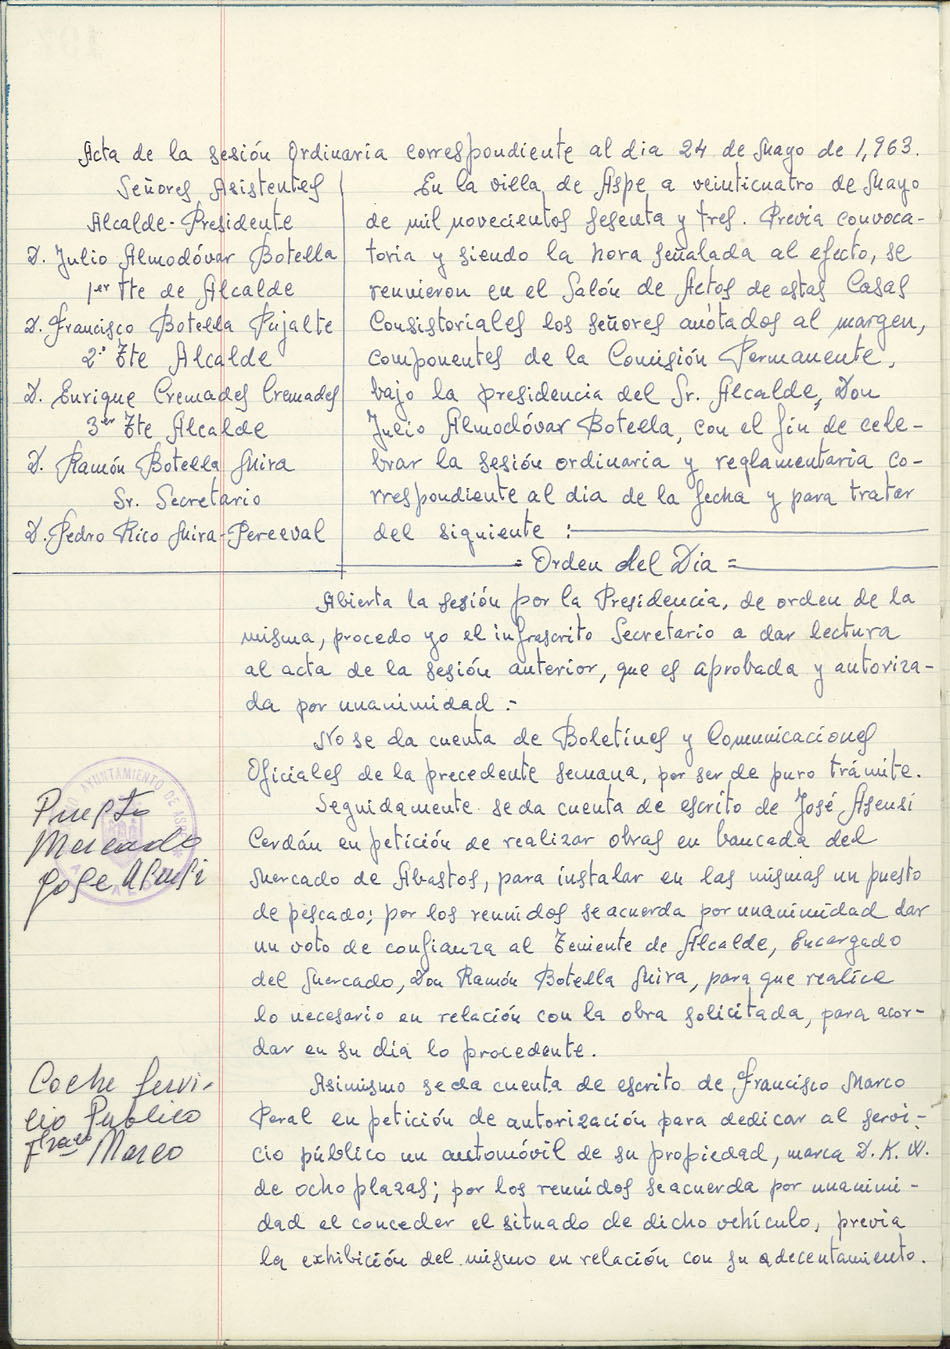 Acta de la sesión Ordinaria correspondiente al dia 24 de Mayo de 1,963.
Señores Asistentes
Alcalde-Presidente
D. Julio Almodóvar Botella
1er Tte de Alcalde
D. Francisco Botella Pujalte
2º Tte Alcalde
D. Enrique Cremades Cremades
3er Tte Alcalde
D. Ramón Botella Mira
Sr. Secretario
D. Pedro Rico Mira-Perceval
En la villa de Aspe a veinticuatro de Mayo
de mil novecientos sesenta y tres. Previa convoca-
toria y siendo la hora señalada al efecto, se
reunieron en el Salón de Actos de estas Casas
Consistoriales los señores anótados al margen,
componentes de la Comisión Permanente,
bajo la presidencia del Sr. Alcalde, Don
Julio Almodóvar Botella, con el fin de cele-
brar la sesión ordinaria y reglamentaria co-
rrespondiente al dia de la fecha y para tratar
del siguiente :
= Orden del Día =
Abierta la sesión por la Presidencia, de orden de la
misma, procedo yo el infrascrito Secretario a dar lectura
al acta de la sesión anterior, que es aprobada y autoriza-
da por unanimidad.-
No se da cuenta de Boletines y Comunicaciones
Oficiales de la precedente semana, por ser de puro trámite.
Puesto
Mercado
Jose Asensi
AYUNTAMIENTO DE ASPE
Seguidamente se da cuenta de escrito de José Asensi
Cerdán en petición de realizar obras en bancada del
Mercado de Abastos, para instalar en las mismas un puesto
de pescado; por los reunidos se acuerda por unanimidad dar
un voto de confianza al Teniente de Alcalde, Encargado
del Mercado, Don Ramón Botella Mira, para que realice
lo necesario en relación con la obra solicitada, para acor-
dar en su día lo procedente.
Coche Servi-
cio Publico
Fraco Marco
Asimismo se da cuenta de escrito de Francisco Marco
Peral en petición de autorización para dedicar al servi-
cio público un automóvil de su propiedad, marca D.K.W.
de ocho plazas; por los reunidos se acuerda por unanimi-
dad el conceder el situado de dicho vehículo, previa
la exhibición del mismo en relación con su adecentamiento.